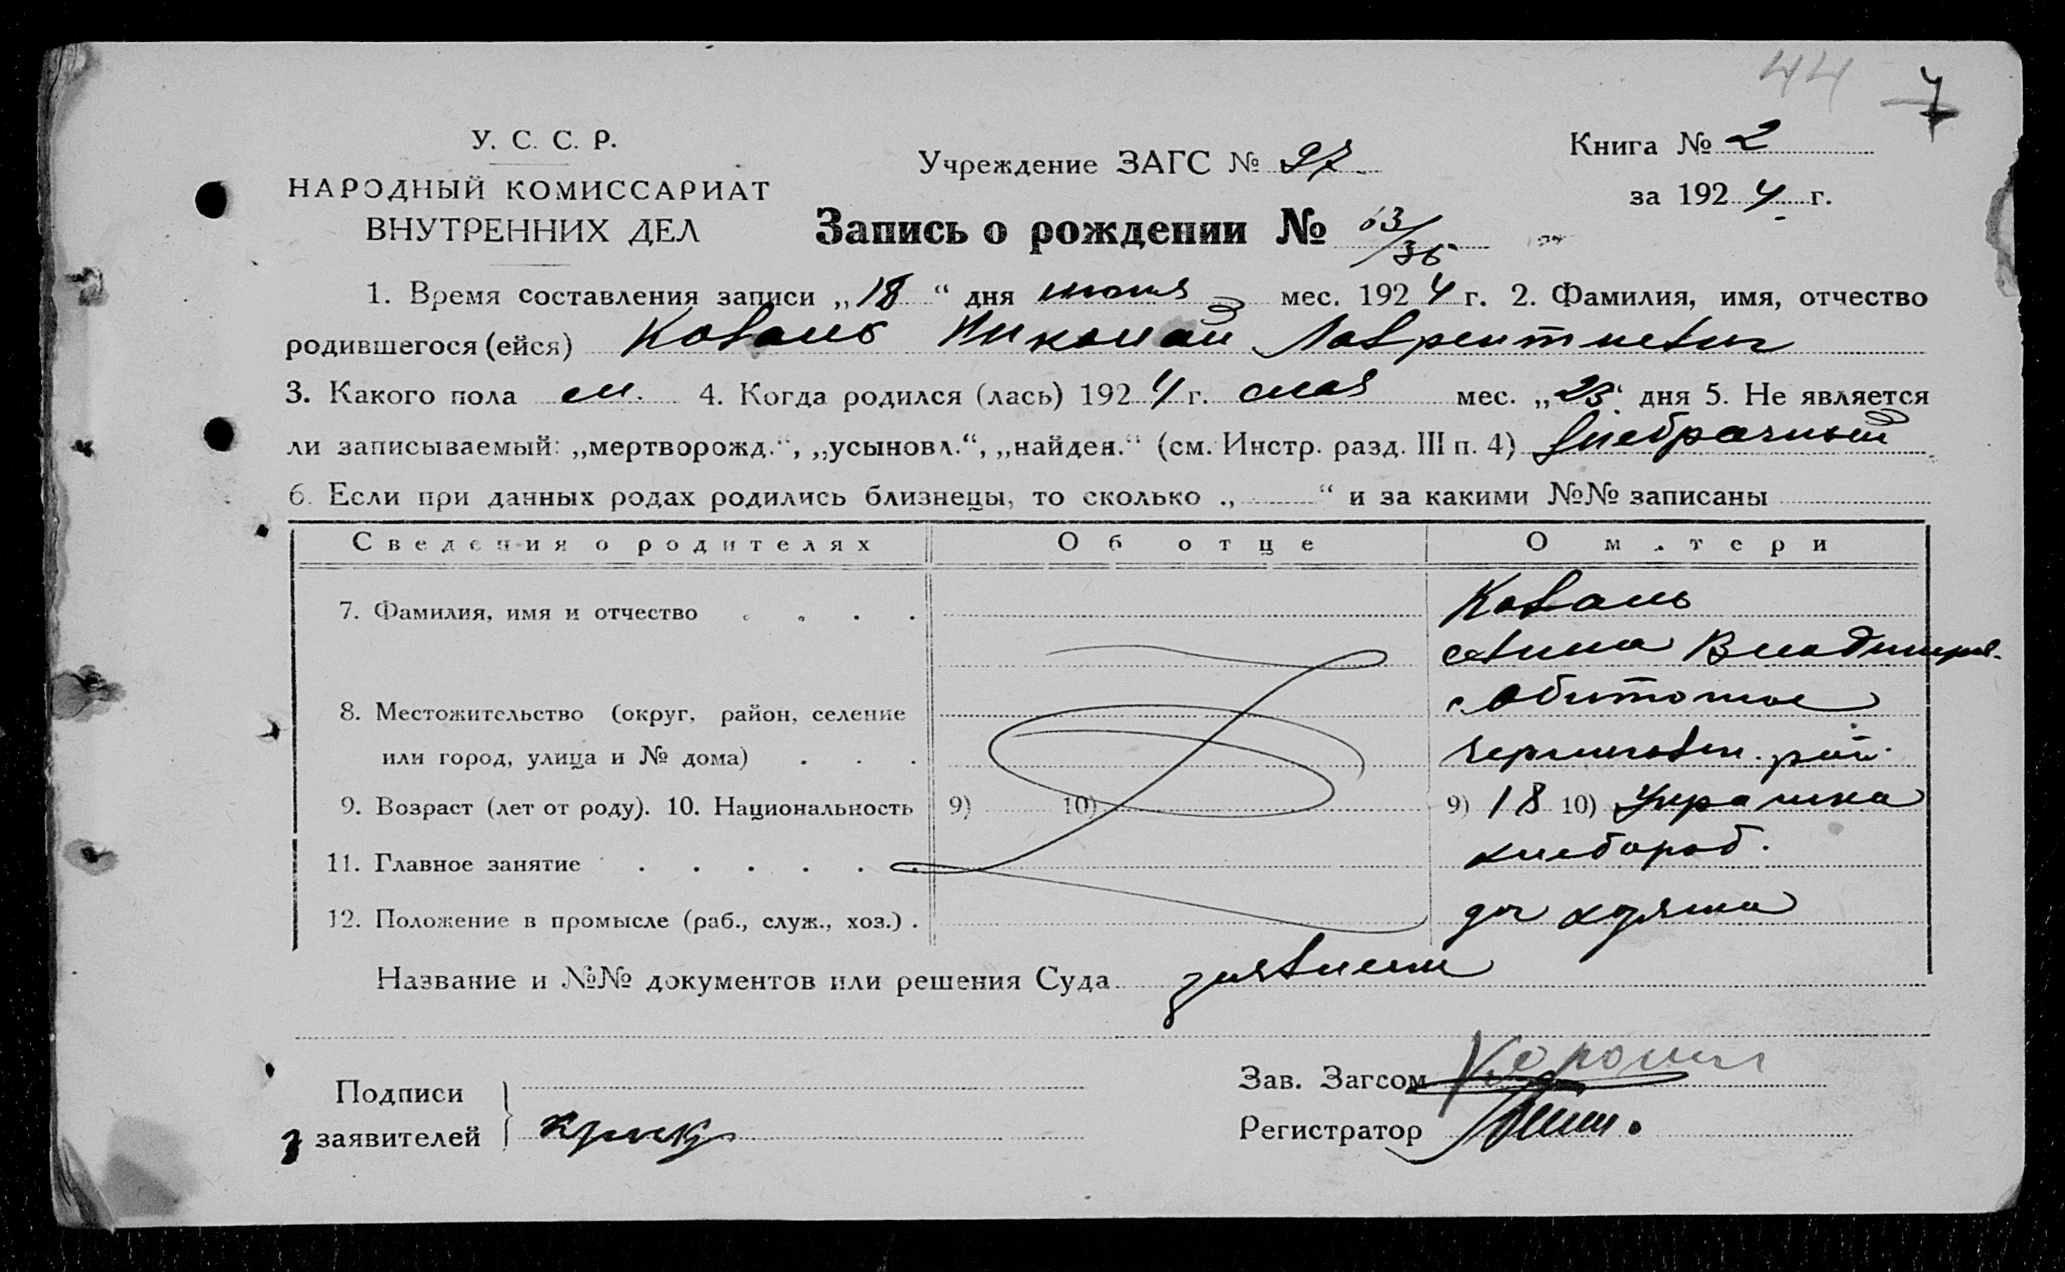 44 7
У. С. С. Р.
НАРОДНЫЙ КОМИССАРИАТ
ВНУТРЕННИХ ДЕЛ
Учреждение ЗАГС № 27
Книга № 2
за 1924 г.
Запись о рождении № 63/36
1. Время составления записи „18“ дня июня мес. 1924 г. 2. Фамилия, имя, отчество
родившегося (ейся) Коваль Николай Лаврентиевич
3. Какого пола м. 4. Когда родился (лась) 1924 г. мая мес. „23“ дня 5. Не является
ли записываемый: „мертворожд.“, „усыновл.“, „найден.“ (см. Инстр. разд. III п. 4) внебрачный
6. Если при данных родах родились близнецы, то сколько „ “ и за какими №№ записаны
Сведения о родителях Об отце О матери
7. Фамилия, имя и отчество Коваль
Владимиров.
8. Местожительство (округ, район, селение
или город, улица и № дома) рай.
9. Возраст (лет от роду). 10. Национальность 9) 10) 9) 18 10) Украинка
11. Главное занятие хлебороб.
12. Положение в промысле (раб., служ., хоз.) доч хозяина
Название и №№ документов или решения Суда
Подписи
заявителей
Зав. Загсом
Регистратор